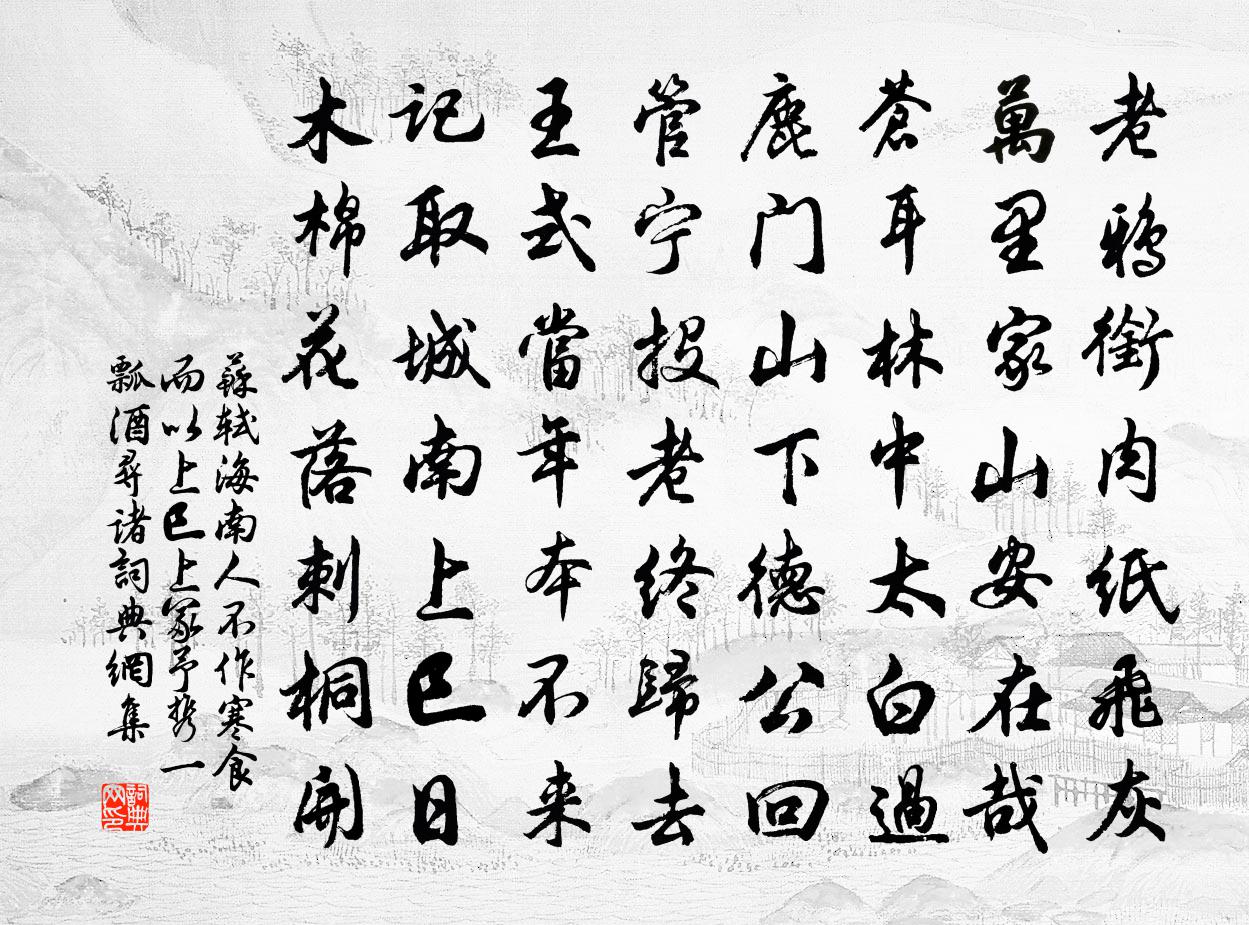 老鴉銜肉紙飛灰
萬里家山安在哉
蒼耳林中太白過
鹿门山下德公回
管宁投老終歸去
王式當年本不来
記取城南上巳日
木棉花落刺桐開
蘇軾海南人不作寒食
而以上巳上冢予携一
瓢酒尋諸詞典網集
詞典网印